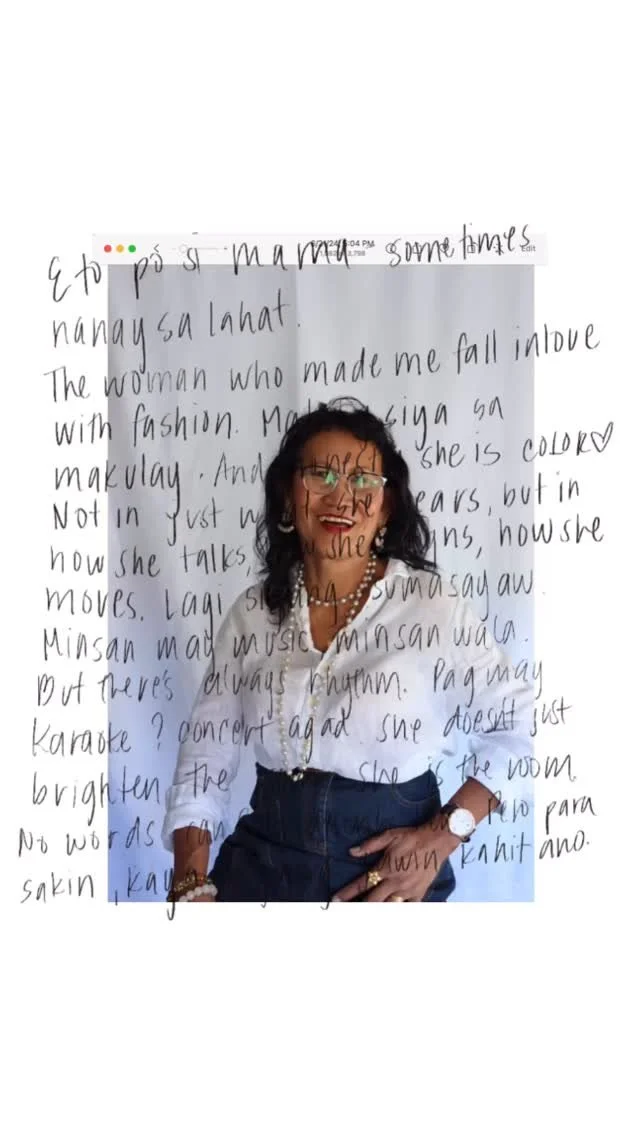 5:04 PM
Edit
Eto po si mama sometimes
nanay sa lahat.
The woman who made me fall inlove
with fashion. siya sa
makulay. And she is COLOR♡
Not in just she ears, but in
how she talks, she how she
moves. Lagi siyang sumasayaw.
Minsan may music minsan wala.
But there's always rhythm. Pag may
karaoke? concert agad. she doesn't just
brighten the she is the room.
No words can Pero para
sakin, kaya kahit ano.